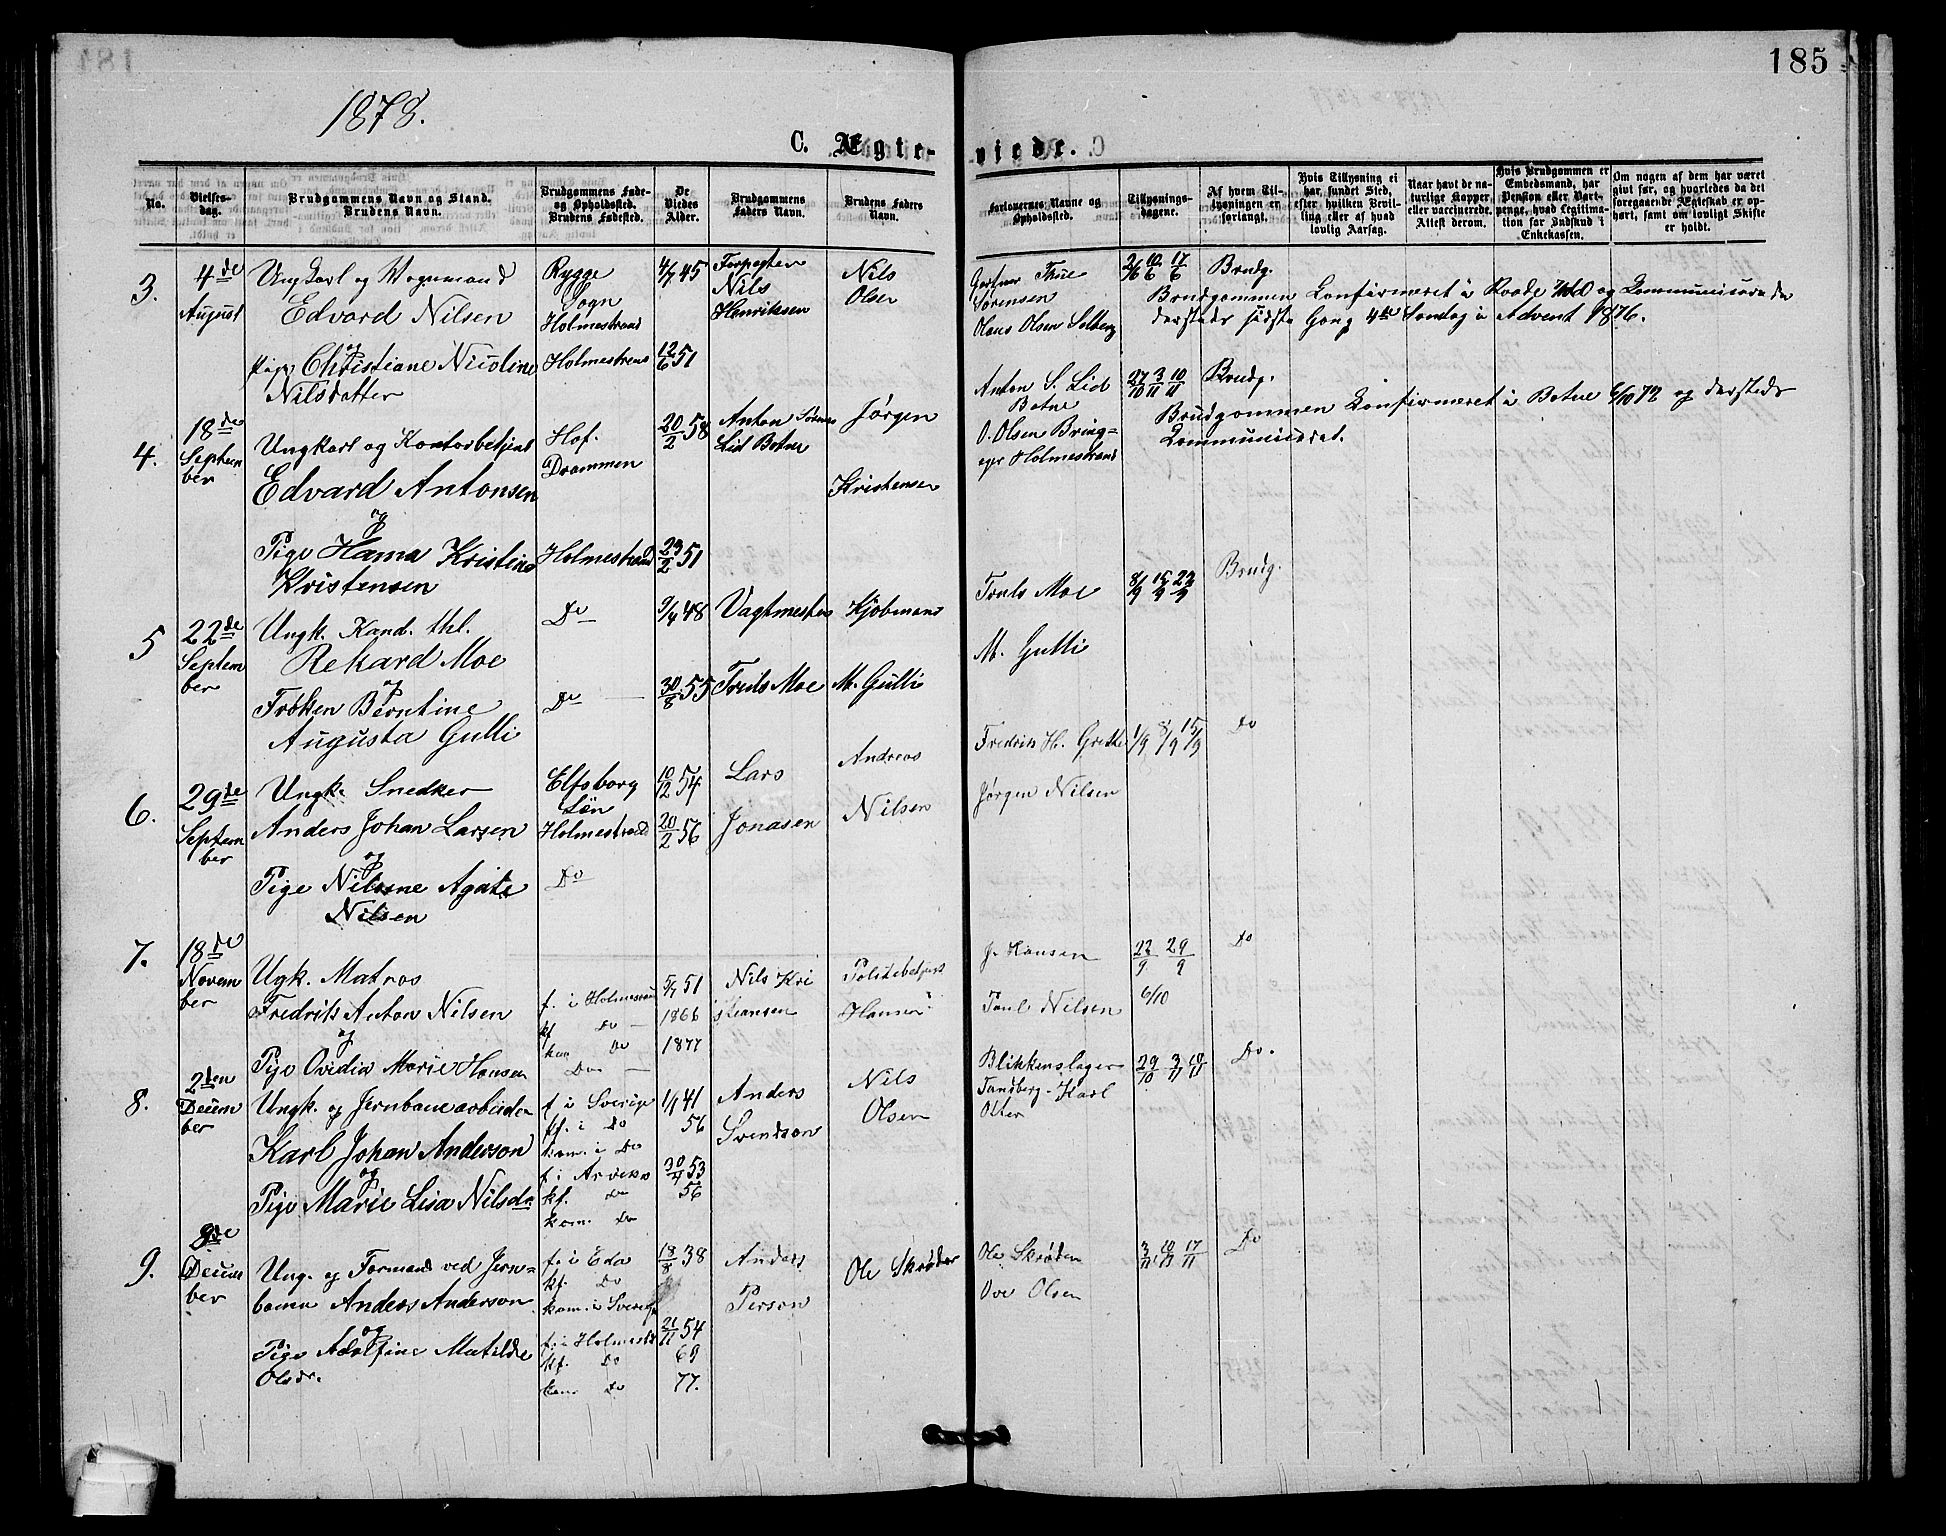 185
1878.
C. Ægte-
viede.
No.
Vielses-
dag.
Brudgommens Navn og Stand.
Brudens Navn.
Brudgommens Føde-
og Opholdssted.
Brudens Fødested.
De
Viedes
Alder.
Brudgommens
Faders Navn.
Brudens Faders
Navn.
Forlovernes Navne og
Opholdssted.
Tillysnings-
dagene.
Af hvem Til-
lysningen er
forlangt.
Hvis Tillysning ei
har fundet Sted,
efter hvilken Bevil-
ling eller af hvad
lovlig Aarsag.
Naar havt de na-
turlige Kopper
eller vaccinerede.
Attest derom.
Hvis Brudgommen er
Embedsmand, har
Pension eller Vart-
penge, hvad Legitima-
tion for Indskud i
Enkekassen.
Om nogen af dem har været
givt før, og hvorledes da det
foregaaende Ægteskab er op-
hørt, samt om lovligt Skifte
er holdt.
3.
4de
August
Ungkarl og Vognmand
Edvard Nilsen
og
Pige Christiane Nicoline
Nilsdatter
Rygge
Sogn
Holmestrand
Holmestrand
4/7 45
12/6 51
Forpagter
Nils
Henriksen
Nils
Olsen
Gartner Thue
Sørensen
Olaus Olsen Solberg
2/6 10/6 17/6
Brudg.
Brudgommen Konfirmeret i Raade og Kommuniceret
dersteds sidste Gang 4de Søndag i Advent 1876.
4.
18de
Septem
ber
Ungkarl og Kontorbetjent
Edvard Antonsen
og
Pige Hanna Kristine
Kristensen
Hof.
Drammen
Holmestrand
20/2 58
23/2 51
Anton Søren
Lid Botne
Jørgen
Kristensen
Anton S. Lid
Botne
O. Olsen Bring=
ager Holmestrand
27/10 3/11 10/11
Brudg.
Brudgommen Konfirmeret i Botne 6/10 72 og dersteds
Kommuniceret.
5
22de
Septem
ber
Ungk. Kand. thl.
Rekard Moe
og
Frøken Berntine
Augusta Gulli
Do
Do
9/4 48
30/8 55
Vagtmester
Truls Moe
Kjøbmand
M. Gulli
Truls Moe
M. Gulli
8/9 15/9 22/9
Brudg.
6.
29de
Septem
ber
Ungk. Snedker
Anders Johan Larsen
og
Pige Nilsine Agate
Nilsen
Elfsborg
Län
Holmestrand
Do
10/12 54
20/2 56
Lars
Jonasen
Andreas
Nilsen
Fredrik H. Grette
Jørgen Nilsen
1/9 8/9 15/9
Do
7.
18de
Novem
ber
Ugk. Matros
Fredrik Anton Nilsen
og
Pige Ovidia Marie Hansen
f. i Holmestrand
kf Do
kom Do
Do
5/7 51
1866
1877
Nils Kri
stiansen
Politibetjent
Hansen
J. Hansen
Paul Nilsen
22/9 29/9
6/10
Do
8.
2den
Decem
ber
Ungk. og Jernbanearbeider
Karl Johan Anderson
og
Pige Marie Lisa Nilsdr.
f i Sverige
kf. i Do
kom. i Do
kf. Do
kom. Do
1/1 41
56
30/4 53
56
Anders
Svendson
Nils
Olsen
Blikkenslager
Tandberg - Karl
29/10 3/11 10/11
Do.
9.
8de
Decem
ber
Ung. og Formand ved Jern=
banen Anders Anderson
og
Pige Adolfine Matilde
Olsdr.
f. i Eda
kf. Do
kom. i Sverige
f. i Holmestr
kf. Do
kom Do
18/8 38
21/11 54
69
77.
Anders
Person
Ole Skrøder
Ole Skrøder
Ove Olsen
3/11 10/11 17/11
Do